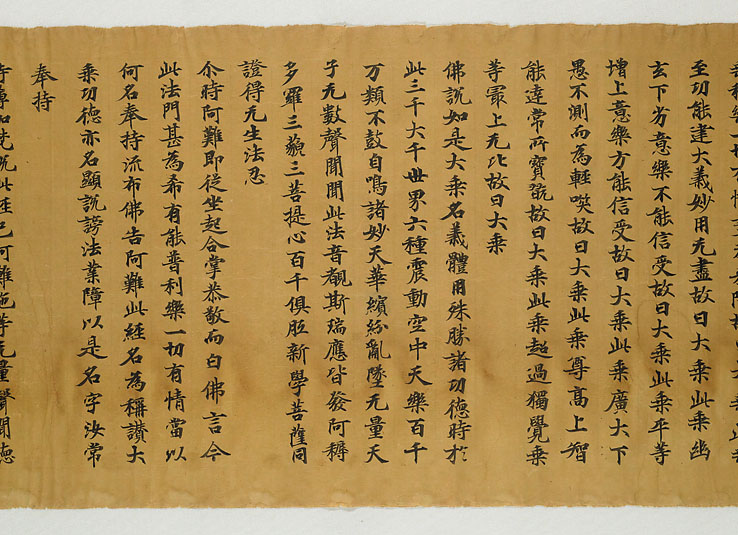 至功能建大義妙用无盡故曰大乘此乘幽
玄下劣意樂不能信受故曰大乘此乘平等
增上意樂方能信受故曰大乘此乘廣大下
愚不測而為輕唉故曰大乘此乘尊高上智
能達常所寶翫故曰大乘此乘超過獨覺乘
等最上无比故曰大乘
佛說如是大乘名義體用殊勝諸功德時於
此三千大千世界六種震動空中天樂百千
万類不鼓自鳴諸妙天華繽紛亂墜无量天
子无數聲聞聞此法音覩斯瑞應皆發阿耨
多羅三藐三菩提心百千俱胝新學菩薩同
證得无生法忍
尒時阿難即從坐起合掌恭敬而白佛言今
此法門甚為希有能普利樂一切有情當以
何名奉持流布佛告阿難此經名為稱讚大
乘功德亦名顯說謗法業障以是名字汝常
奉持